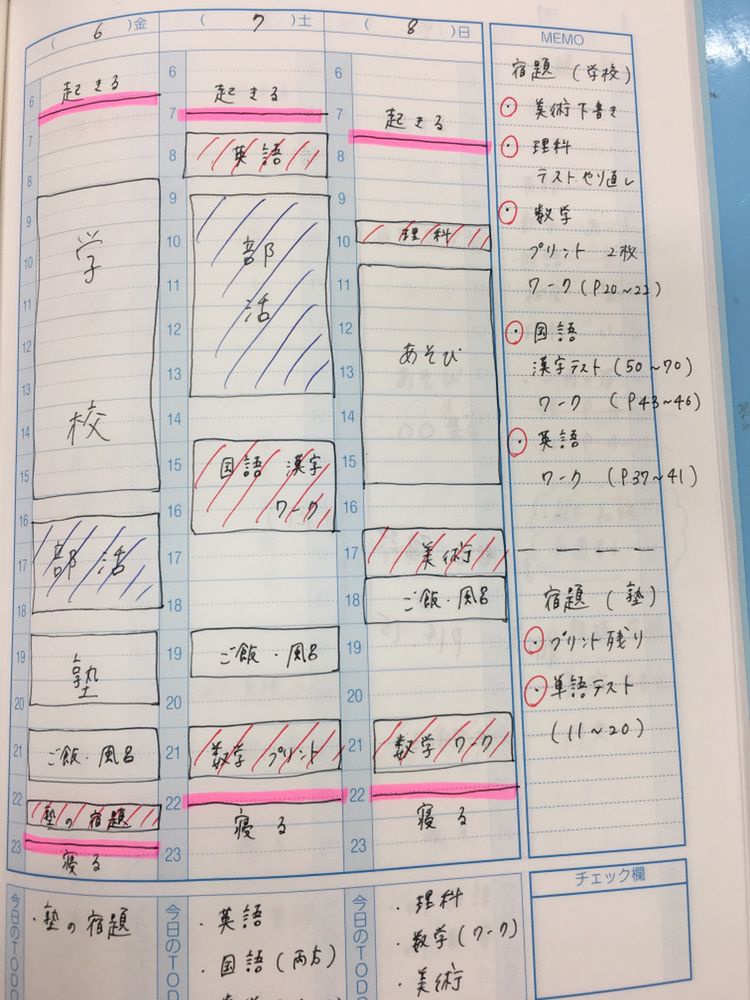 ( 6 )金
6
起きる
7
8
9
10
11
12
13
14
15
16
17
18
19
20
21
22
23
学校
部活
塾
ご飯・風呂
塾の宿題
寝る
今日のTODO
・塾の宿題
( 7 )土
6
起きる
7
8
英語
9
10
11
12
13
部活
14
15
国語 漢字
16
ワーク
17
18
19
ご飯・風呂
20
21
数学 プリント
22
寝る
23
今日のTODO
・英語
・国語(両方)
( 8 )日
6
7
起きる
8
9
10
理科
11
12
あそび
13
14
15
16
17
美術
18
ご飯・風呂
19
20
21
数学 ワーク
22
寝る
23
今日のTODO
・理科
・数学(ワーク)
・美術
MEMO
宿題(学校)
・美術下書き
・理科
テストやり直し
・数学
プリント 2枚
ワーク(P20~22)
・国語
漢字テスト(50~70)
ワーク (P43~46)
・英語
ワーク (P37~41)
宿題(塾)
・プリント残り
・単語テスト
(11~20)
チェック欄